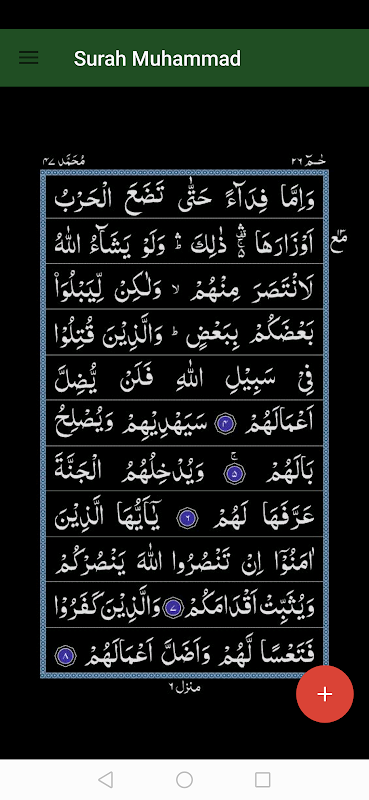 Surah Muhammad
مُحَمَّد ٤٧
حٰمٓ ٢٦
وَاِمَّا فِدَآءً حَتّٰى تَضَعَ الْحَرْبُ
اَوْزَارَهَا ۛۚ ذٰلِكَ ۛؕ وَلَوْ يَشَآءُ اللّٰهُ
لَانْتَصَرَ مِنْهُمْ ۙ وَلٰكِنْ لِّيَبْلُوَا۟
بَعْضَكُمْ بِبَعْضٍ ؕ وَالَّذِيْنَ قُتِلُوْا
فِىْ سَبِيْلِ اللّٰهِ فَلَنْ يُّضِلَّ
اَعْمَالَهُمْ ﴿۴﴾ سَيَهْدِيْهِمْ وَيُصْلِحُ
بَالَهُمْ ۚ﴿۵﴾ وَيُدْخِلُهُمُ الْجَنَّةَ
عَرَّفَهَا لَهُمْ ﴿۶﴾ يٰۤاَيُّهَا الَّذِيْنَ
اٰمَنُوْۤا اِنْ تَنْصُرُوا اللّٰهَ يَنْصُرْكُمْ
وَيُثَبِّتْ اَقْدَامَكُمْ ﴿۷﴾ وَالَّذِيْنَ كَفَرُوْا
فَتَعْسًا لَّهُمْ وَاَضَلَّ اَعْمَالَهُمْ ﴿۸﴾
منزل ٦